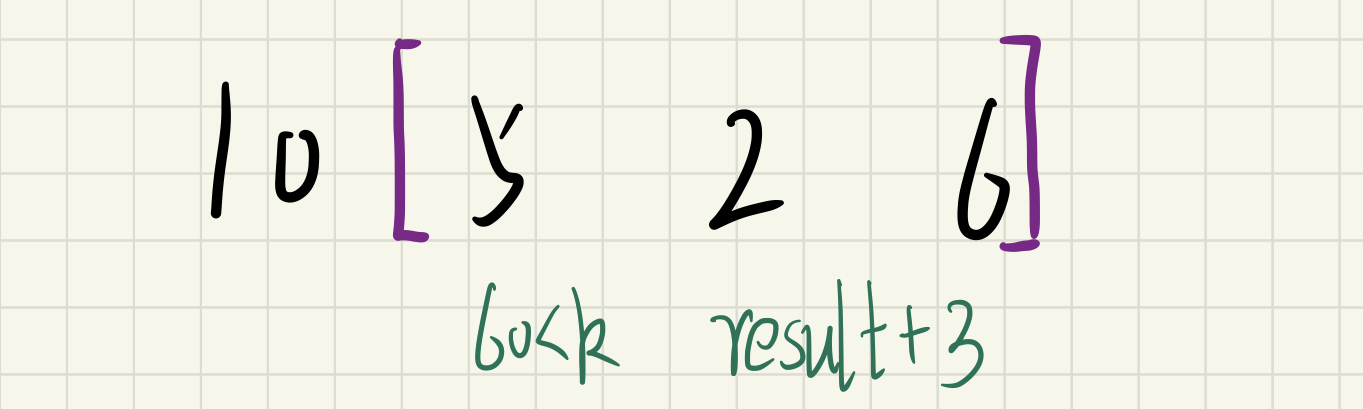 10 [5 2 6]
back result+3